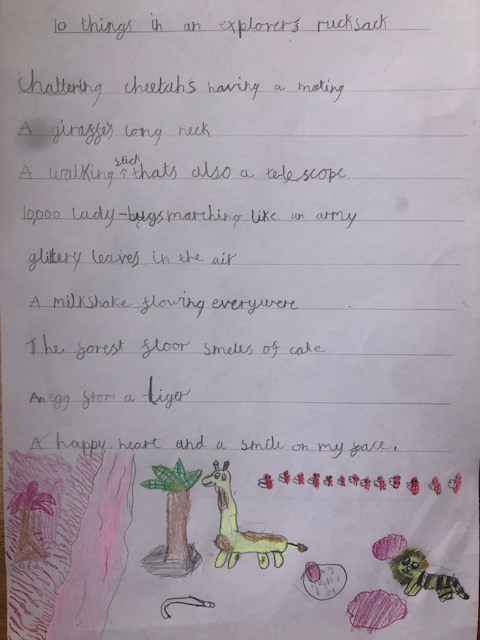 10 things in an explorers rucksack
Chattering cheetahs having a meting
A giraffes long neck
A walking stick thats also a telescope
10,000 lady-bugs marching like an army
glittery leaves in the air
A milkshake flowing everywere
The forest floor smells of cake
An egg from a tiger
A happy heart and a smile on my face.